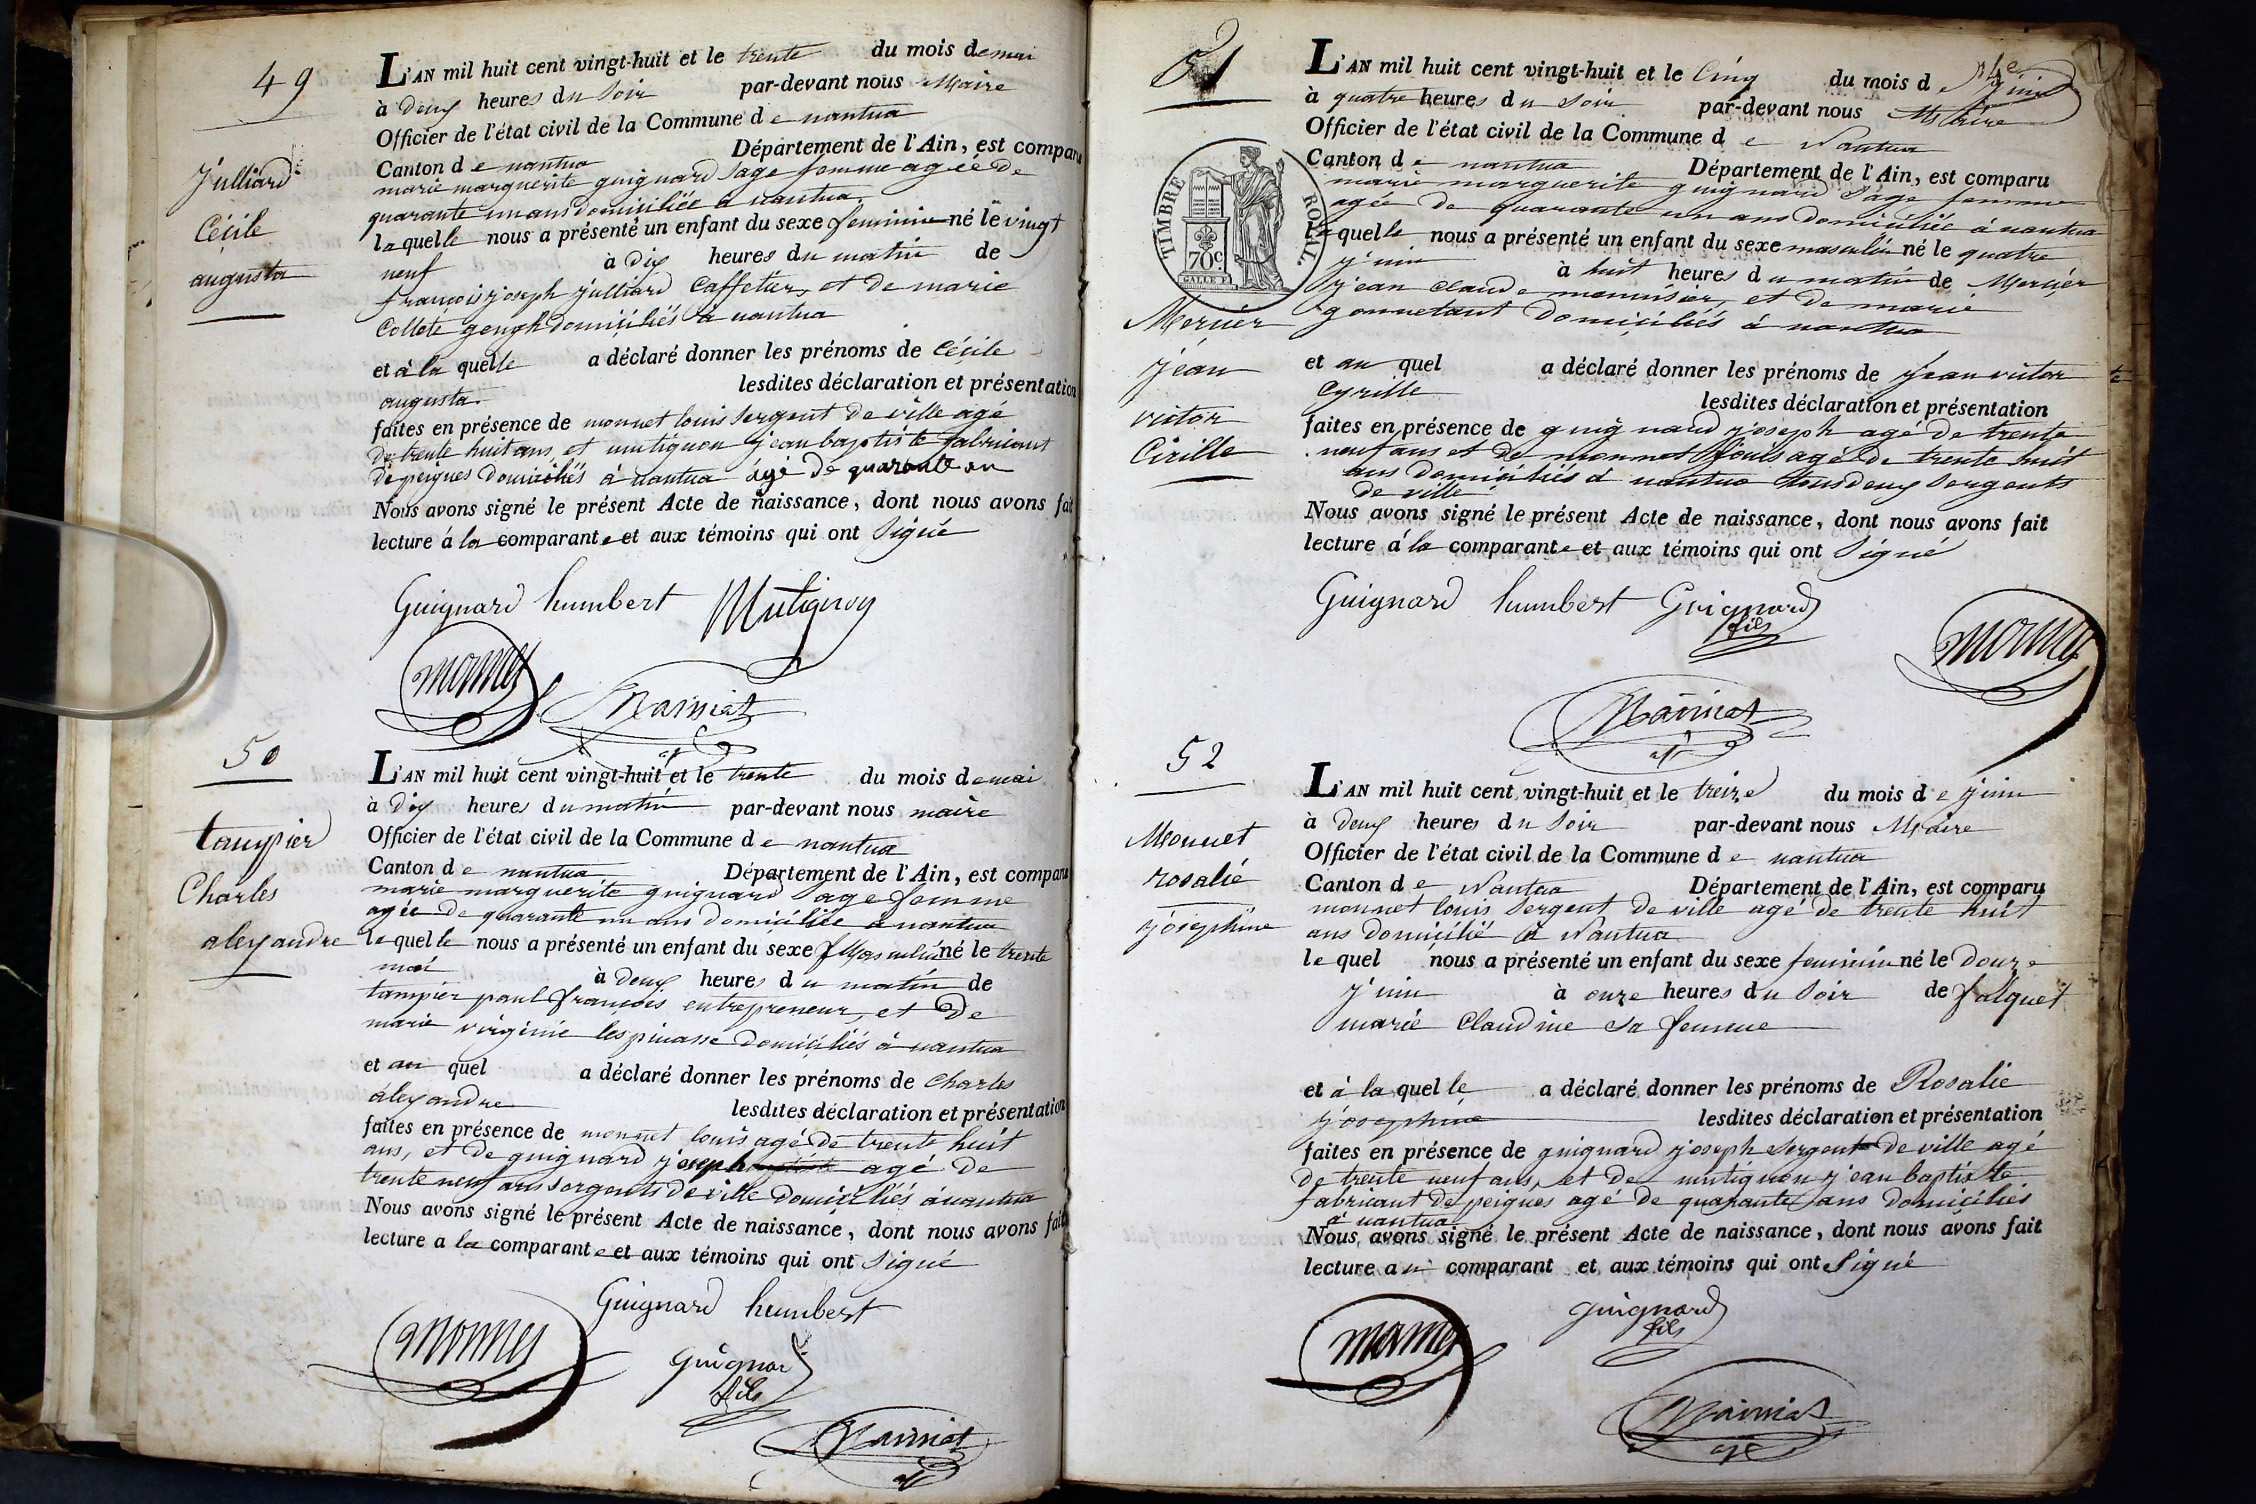 49
Julliard
Cécile
augusta
L'AN mil huit cent vingt-huit et le trente du mois de mai
à deux heures du soir par-devant nous Maire
Officier de l'état civil de la Commune de nantua
Canton de nantua Département de l'Ain, est comparu
marie marguerite guignard sage femme agée de
quarante un ans domiciliée a nantua
laquelle nous a présenté un enfant du sexe feminin né le vingt
neuf à dix heures du matin de
françois joseph julliard caffetier, et de marie
domiciliés a nantua
et à la quelle a déclaré donner les prénoms de Cécile
augusta. lesdites déclaration et présentation
faites en présence de monnet louis sergent de ville agé
de trente huit ans, et mutiguon jean baptiste fabricant
de peignes domiciliés à nantua agé de quarante un
Nous avons signé le présent Acte de naissance, dont nous avons fait
lecture à la comparante et aux témoins qui ont signé
Guignard humbert
monnet
50
tampier
Charles
alexandre
L'AN mil huit cent vingt-huit et le trente du mois de mai
à dix heures du matin par-devant nous maire
Officier de l'état civil de la Commune de nantua
Canton de nantua Département de l'Ain, est comparu
marie marguerite guignard sage femme
agée de quarante un ans domiciliée a nantua
laquelle nous a présenté un enfant du sexe Masculin né le trente
mai à deux heures du matin de
tampier paul françois entrepreneur, et de
marie virginie lespinasse domiciliés à nantua
et au quel a déclaré donner les prénoms de Charles
alexandre lesdites déclaration et présentation
faites en présence de monnet louis agé de trente huit
ans, et de guignard joseph agé de
trente neuf ans sergents de ville domiciliés à nantua
Nous avons signé le présent Acte de naissance, dont nous avons fait
lecture a la comparante et aux témoins qui ont signé
Guignard humbert
monnet
guignard
fils
51
TIMBRE ROYAL.
70c.
Mercier
jean
victor
Cirille
L'AN mil huit cent vingt-huit et le cinq du mois de juin
à quatre heures du soir par-devant nous Maire
Officier de l'état civil de la Commune de Nantua
Canton de nantua Département de l'Ain, est comparu
marie marguerite guignard sage femme
agée de quarante un ans domiciliée à nantua
laquelle nous a présenté un enfant du sexe masculin né le quatre
juin à huit heures du matin de Mercier
jean claude menuisier, et de marie
gonnetant domiciliés à nantua
et au quel a déclaré donner les prénoms de jean victor
cyrille lesdites déclaration et présentation
faites en présence de guignard joseph agé de trente
neuf ans et de monnet louis agé de trente huit
ans domiciliés à nantua tous deux sergents
de ville
Nous avons signé le présent Acte de naissance, dont nous avons fait
lecture à la comparante et aux témoins qui ont signé
Guignard humbert Guignard
fils
monnet
52
Monnet
rosalie
josephine
L'AN mil huit cent vingt-huit et le treize du mois de juin
à deux heures du soir par-devant nous Maire
Officier de l'état civil de la Commune de nantua
Canton de Nantua Département de l'Ain, est comparu
monnet louis sergent de ville agé de trente huit
ans domicilié à Nantua
lequel nous a présenté un enfant du sexe feminin né le douze
juin à onze heures du soir de falquet
marie Claudine sa femme
et à la quelle a déclaré donner les prénoms de Rosalie
josephine lesdites déclaration et présentation
faites en présence de guignard joseph sergent de ville agé
de trente neuf ans, et de mutiguon jean baptiste
fabricant de peignes agé de quarante ans domiciliés
à nantua
Nous avons signé le présent Acte de naissance, dont nous avons fait
lecture au comparant et aux témoins qui ont signé
monnet
guignard
fils